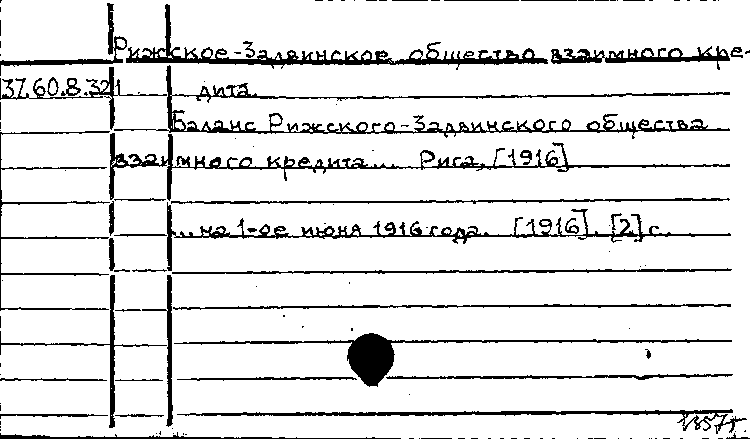 Рижское-Задвинское общество взаимного кре-
37.60.8.321 дита.
Баланс Рижского-Задвинского общества
взаимного кредита... Рига, [1916]
...на 1-ое июня 1916 года. [1916]. [2] с.